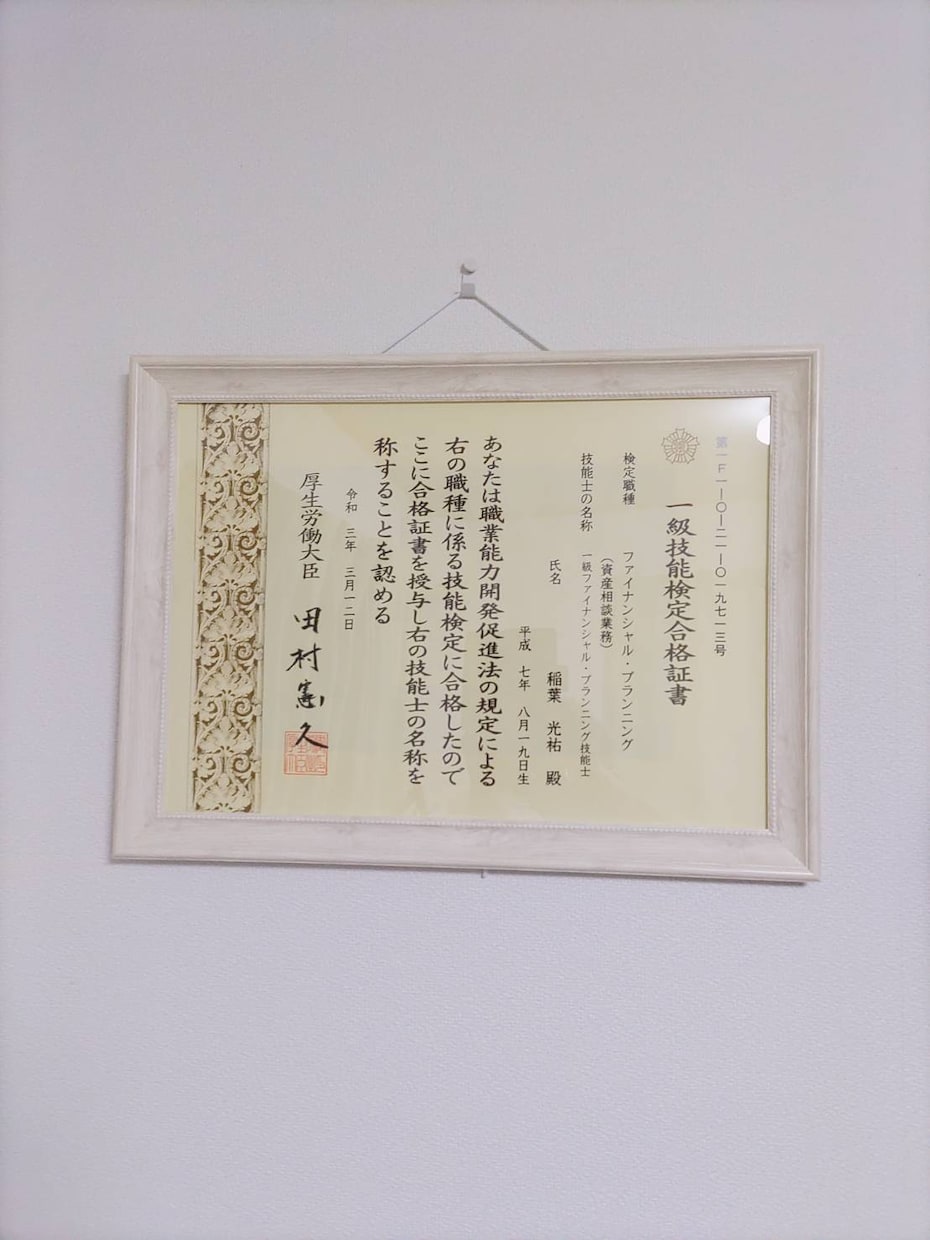 第一F一一〇一二一一〇一九七一三号
一級技能検定合格証書
検定職種　ファイナンシャル・プランニング
(資産相談業務)
技能士の名称　一級ファイナンシャル・プランニング技能士
氏名　稲葉　光祐　殿
平成　七年　八月一九日生
あなたは職業能力開発促進法の規定による
右の職種に係る技能検定に合格したので
ここに合格証書を授与し右の技能士の名称を
称することを認める
令和　三年　三月一二日
厚生労働大臣　田村憲久